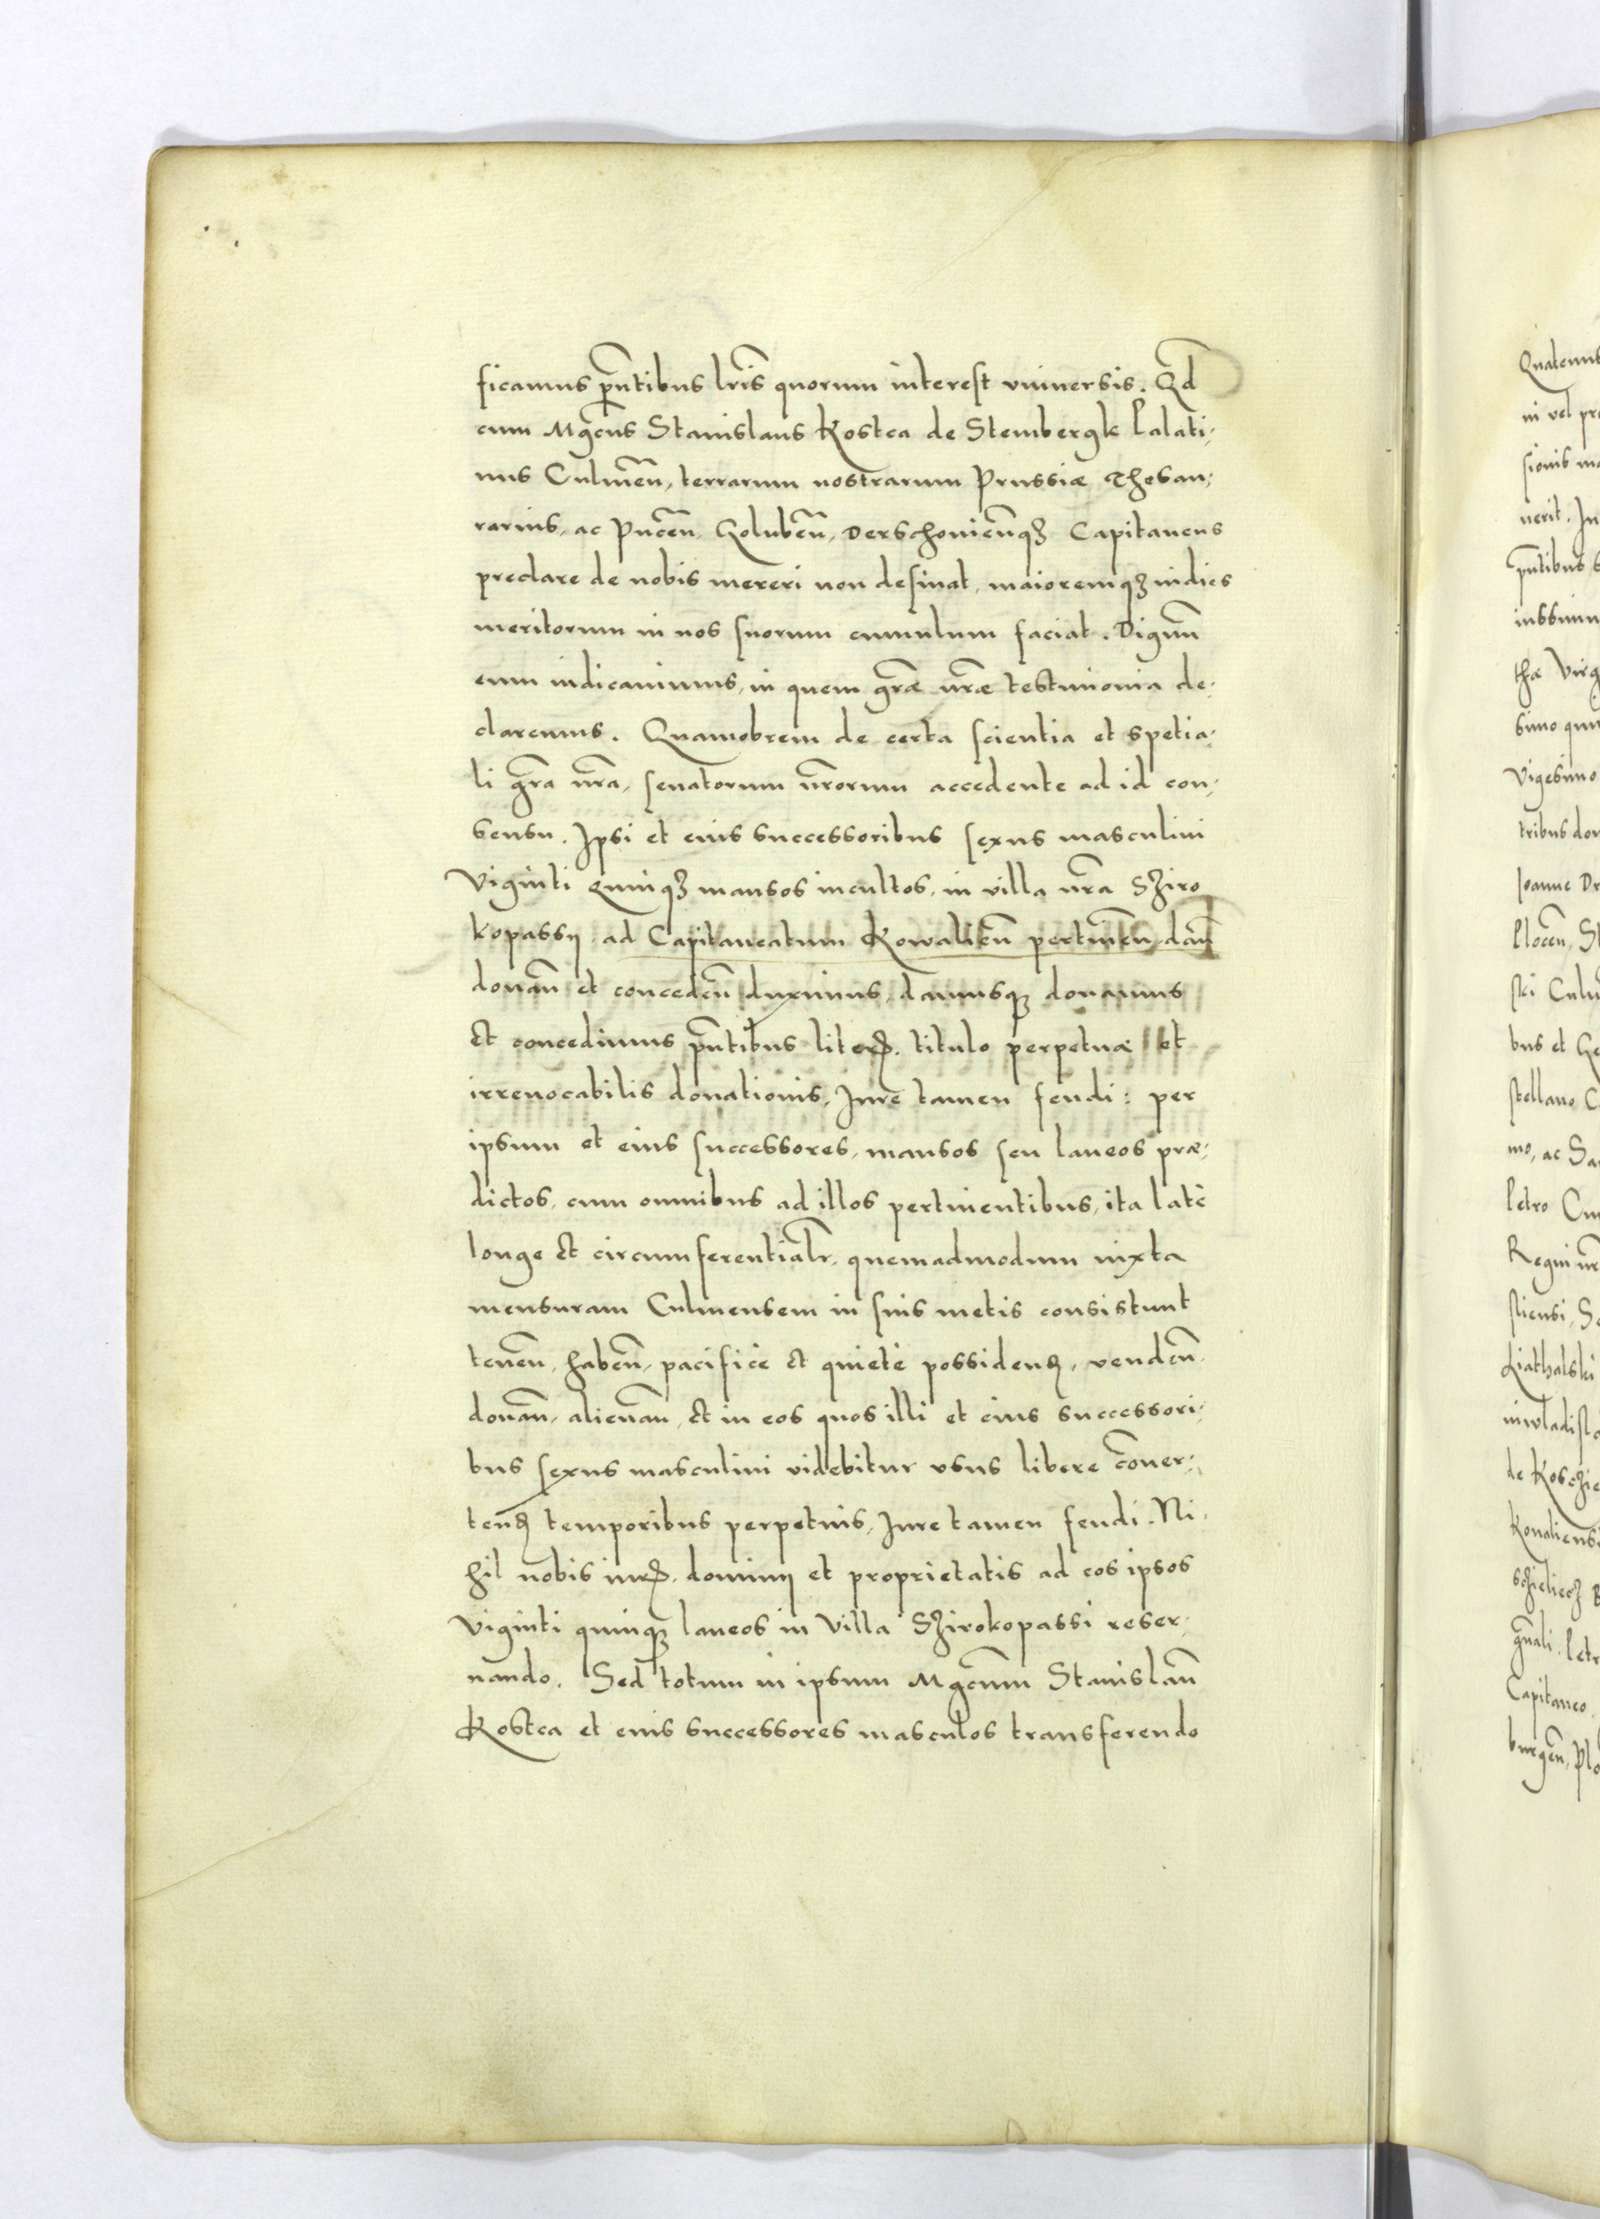 ficamus pñtibus lris quorum interest vniuersis. Qd
cum Mgcus Stanislaus Kostca de Stembergk Palati-
nus Culmeñ, terrarum nostrarum Prussiæ Thesau-
rarius, ac Puceñ, Golubeñ, Derschouieñqz Capitaneus
preclare de nobis mereri non desinat, maioremqz indies
meritorum in nos suorum cumulum faciat. Dignũ
eum iudicauimus, in quem gr̃æ nr̃æ testimonia de-
claremus. Quamobrem de certa scientia et spetia-
li gr̃a nr̃a, senatorum nr̃orum accedente ad id con-
sensu. Ipsi et eius successoribus sexus masculini
Viginti Quinqz mansos incultos, in villa nr̃a Sziro
kopassy, ad Capitaneatum Kowalieñ pertineñ dañ
donañ et concedeñ duximus, damusqz donamus
et concedimus pñtibus literꝭ. titulo perpetuæ et
irreuocabilis donationis, Iure tamen feudi: per
ipsum et eius successores, mansos seu laneos præ-
dictos, cum omnibus ad illos pertinentibus, ita latè
longe et circumferentialr̃, quemadmodum iuxta
mensuram Culmensem in suis metis consistunt
teneñ, habeñ, pacificè et quietè possidendꝭ, vendeñ,
donañ, alienañ, et in eos quos illi et eius successori-
bus sexus masculini videbitur vsus libere cõuer-
tendꝭ temporibus perpetuis, Iure tamen feudi. Ni-
hil nobis iurꝭ. dominij et proprietatis ad eos ipsos
Viginti quinqz laneos in Villa Szirokopassi reser-
uando. Sed totum in ipsum Mgcum Stanislaũ
Kostca et eius successores masculos transferendo